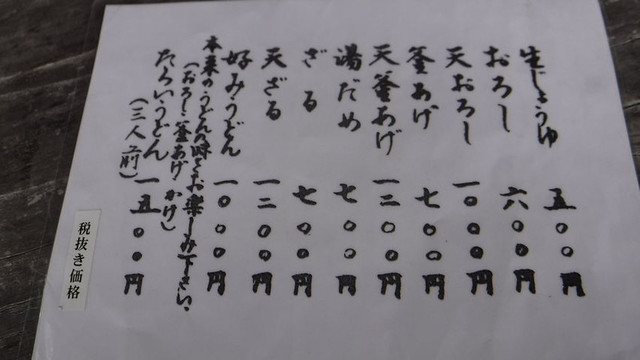 生じょうゆ 五〇〇円
おろし 六〇〇円
天おろし 一〇〇〇円
釜あげ 七〇〇円
天釜あげ 一二〇〇円
湯だめ 七〇〇円
ざる 七〇〇円
天ざる 一二〇〇円
好みうどん 一〇〇〇円
本来のうどんの味をお楽しみ下さい、
(おろし、釜あげ、かけ)
たらいうどん 一五〇〇円
(二、三人前)
税抜き価格